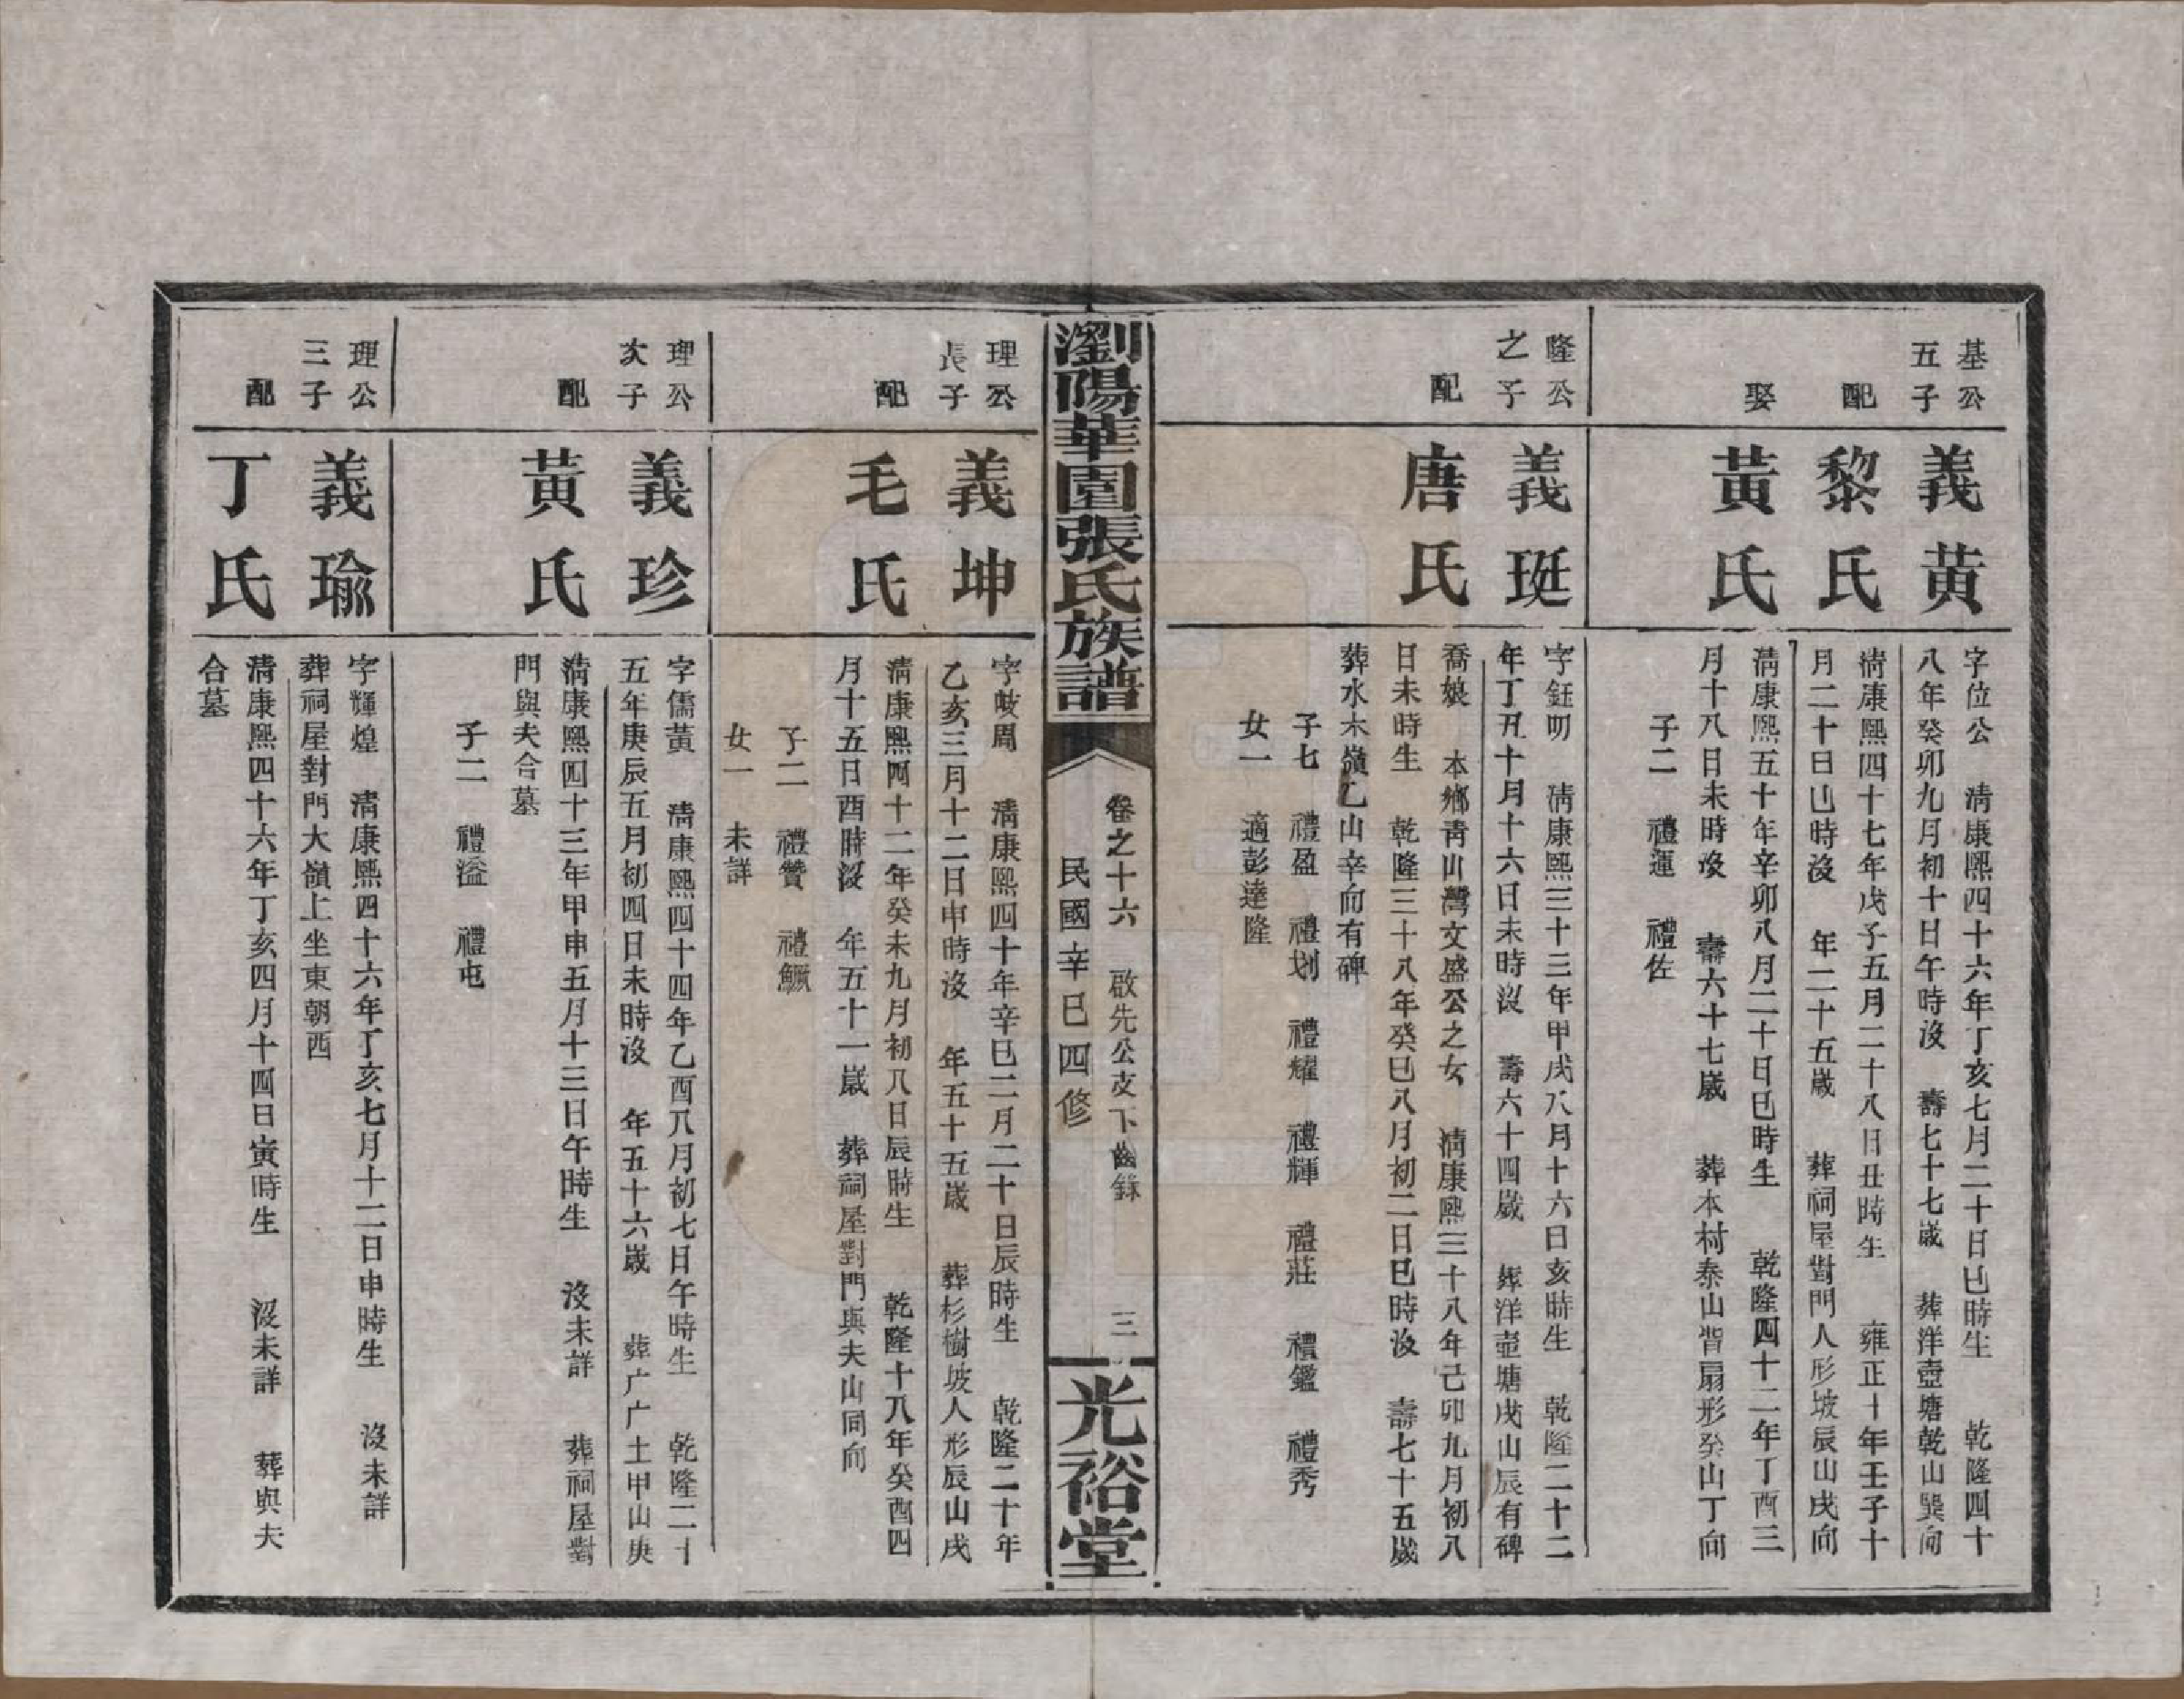 基公
五子
義黃
字位公　清康熙四十六年丁亥七月二十日巳時生　乾隆四十
八年癸卯九月初十日午時沒　壽七十七歲　葬洋壺塘乾山巽向
配
黎氏
清康熙四十七年戊子五月二十八日丑時生　雍正十年壬子十
月二十日巳時沒　年二十五歲　葬祠屋對門人形坡辰山戌向
娶
黃氏
清康熙五十年辛卯八月二十日巳時生　乾隆四十二年丁酉三
月十八日未時沒　壽六十七歲　葬本村泰山背扇形癸山丁向
子二　禮運　禮佐
隆公
之子
義珽
字鈺明　清康熙三十三年甲戌八月十六日亥時生　乾隆二十二
年丁丑十月十六日未時沒　壽六十四歲　葬洋壺塘戌山辰有碑
配
唐氏
喬娘　本鄉青山灣文盛公之女　清康熙三十八年己卯九月初八
日未時生　乾隆三十八年癸巳八月初二日巳時沒　壽七十五歲
葬水木嶺乙山辛向有碑
子七　禮盈　禮划　禮耀　禮輝　禮莊　禮鑑　禮秀
女一　適彭達隆
瀏陽華園張氏族譜
卷之十六　啟先公支下齒錄　三
民國辛巳四修
光裕堂
理公
長子
義坤
字岐周　清康熙四十年辛巳二月二十日辰時生　乾隆二十年
乙亥三月十二日申時沒　年五十五歲　葬杉樹坡人形辰山戌
配
毛氏
清康熙四十二年癸未九月初八日辰時生　乾隆十八年癸酉四
月十五日酉時沒　年五十一歲　葬祠屋對門與夫山同向
子二　禮贊　禮鱖
女一　未詳
理公
次子
義珍
字儒黃　清康熙四十四年乙酉八月初七日午時生　乾隆二十
五年庚辰五月初四日未時沒　年五十六歲　葬广广土甲山庚
配
黃氏
清康熙四十三年甲申五月十三日午時生　沒未詳　葬祠屋對
門與夫合墓
子二　禮溢　禮屯
理公
三子
義瑜
字輝煌　清康熙四十六年丁亥七月十二日申時生　沒未詳
葬祠屋對門大嶺上坐東朝西
配
丁氏
清康熙四十六年丁亥四月十四日寅時生　沒未詳　葬與夫
合墓